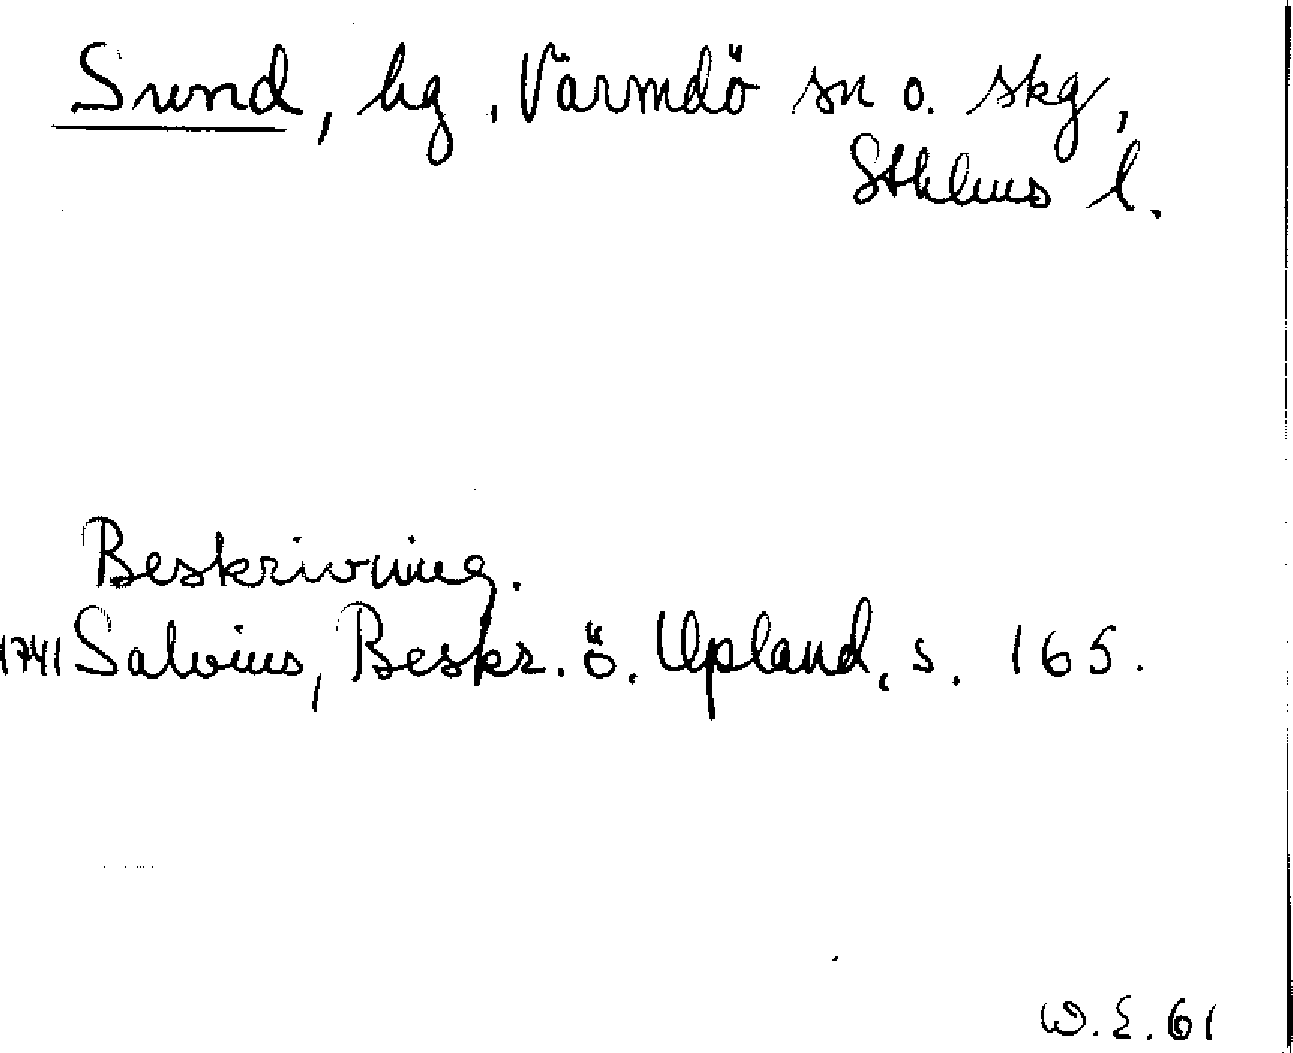 Sund, hg, Värmdö sn o. skg,
Sthlms l.
Beskrivning.
1741 Salvius, Beskr. ö. Upland, s. 165.
W.E.61